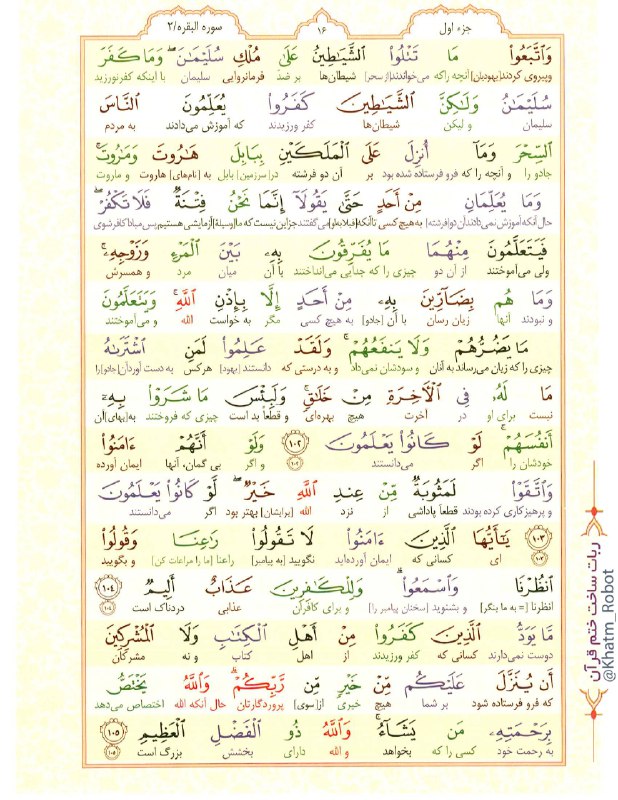 جزء اول
۱۶
سوره البقره/۲
وَٱتَّبَعُوا۟ مَا تَتْلُوا۟ ٱلشَّيَـٰطِينُ عَلَىٰ مُلْكِ سُلَيْمَـٰنَ ۖ وَمَا كَفَرَ
وپیروی کردند[یهودیان] آنچه راکه می‌خواندند[از سحر] شیطان‌ها بر ضد فرمانروایی سلیمان با اینکه کفرنورزید
سُلَيْمَـٰنُ وَلَـٰكِنَّ ٱلشَّيَـٰطِينَ كَفَرُوا۟ يُعَلِّمُونَ ٱلنَّاسَ
سلیمان و لیکن شیطان‌ها کفر ورزیدند که آموزش می‌دادند به مردم
ٱلسِّحْرَ وَمَآ أُنزِلَ عَلَى ٱلْمَلَكَيْنِ بِبَابِلَ هَـٰرُوتَ وَمَـٰرُوتَ ۚ
جادو را و آنچه را که فرو فرستاده شده بود بر آن دو فرشته در[سرزمین] بابل به [نام‌های] هاروت و ماروت
وَمَا يُعَلِّمَانِ مِنْ أَحَدٍ حَتَّىٰ يَقُولَآ إِنَّمَا نَحْنُ فِتْنَةٌ فَلَا تَكْفُرْ ۖ
حال آنکه آموزش نمی‌دادند[آن دو فرشته] به هیچ کسی تا آنکه[قبلا به او] می‌گفتند جز این نیست که ما [وسیلهٔ] آزمایشی هستیم پس مبادا کافر شوی
فَيَتَعَلَّمُونَ مِنْهُمَا مَا يُفَرِّقُونَ بِهِۦ بَيْنَ ٱلْمَرْءِ وَزَوْجِهِۦ ۚ
ولی می‌آموختند از آن دو چیزی را که جدایی می‌انداختند با آن میان مرد و همسرش
وَمَا هُم بِضَآرِّينَ بِهِۦ مِنْ أَحَدٍ إِلَّا بِإِذْنِ ٱللَّهِ ۚ وَيَتَعَلَّمُونَ
و نبودند آنها زیان رسان با آن [جادو] به هیچ کسی مگر به خواست الله و می‌آموختند
مَا يَضُرُّهُمْ وَلَا يَنفَعُهُمْ ۚ وَلَقَدْ عَلِمُوا۟ لَمَنِ ٱشْتَرَىٰهُ
چیزی را که زیان می‌رساند به آنان و سودشان نمی‌داد و به درستی که دانستند [یهود] هرکس به دست آورد[آن جادو] را
مَا لَهُۥ فِى ٱلْـَٔاخِرَةِ مِنْ خَلَـٰقٍ ۚ وَلَبِئْسَ مَا شَرَوْا۟ بِهِۦٓ
نیست برای او در آخرت هیچ بهره‌ای و قطعاً بد است چیزی که فروختند به[بهای] آن
أَنفُسَهُمْ ۚ لَوْ كَانُوا۟ يَعْلَمُونَ ۝١٠٢ وَلَوْ أَنَّهُمْ ءَامَنُوا۟
خودشان را اگر می‌دانستند ۱۰۲ و اگر بی گمان، آنها ایمان آورده
وَٱتَّقَوْا۟ لَمَثُوبَةٌ مِّنْ عِندِ ٱللَّهِ خَيْرٌ ۖ لَّوْ كَانُوا۟ يَعْلَمُونَ
و پرهیزکاری کرده بودند قطعاً پاداشی از نزد الله [برایشان] بهتر بود اگر می‌دانستند
۝١٠٣ يَـٰٓأَيُّهَا ٱلَّذِينَ ءَامَنُوا۟ لَا تَقُولُوا۟ رَٰعِنَا وَقُولُوا۟
۱۰۳ ای کسانی که ایمان آورده‌اید نگویید [به پیامبر] راعنا [ما را مراعات کن] و بگویید
ٱنظُرْنَا وَٱسْمَعُوا۟ ۗ وَلِلْكَـٰفِرِينَ عَذَابٌ أَلِيمٌ ۝١٠٤
انظرنا [= به ما بنگر] و بشنوید [سخنان پیامبر را] و برای کافران عذابی دردناک است ۱۰۴
مَّا يَوَدُّ ٱلَّذِينَ كَفَرُوا۟ مِنْ أَهْلِ ٱلْكِتَـٰبِ وَلَا ٱلْمُشْرِكِينَ
دوست نمی‌دارند کسانی که کفر ورزیدند از اهل کتاب و نه مشرکان
أَن يُنَزَّلَ عَلَيْكُم مِّنْ خَيْرٍ مِّن رَّبِّكُمْ ۗ وَٱللَّهُ يَخْتَصُّ
که فرو فرستاده شود بر شما هیچ خبری از[سوی] پروردگارتان حال آنکه الله اختصاص می‌دهد
بِرَحْمَتِهِۦ مَن يَشَآءُ ۚ وَٱللَّهُ ذُو ٱلْفَضْلِ ٱلْعَظِيمِ ۝١٠٥
به رحمت خود کسی را که بخواهد و الله دارای بخشش بزرگ است ۱۰۵
ربات ساخت ختم قرآن
@Khatm_Robot